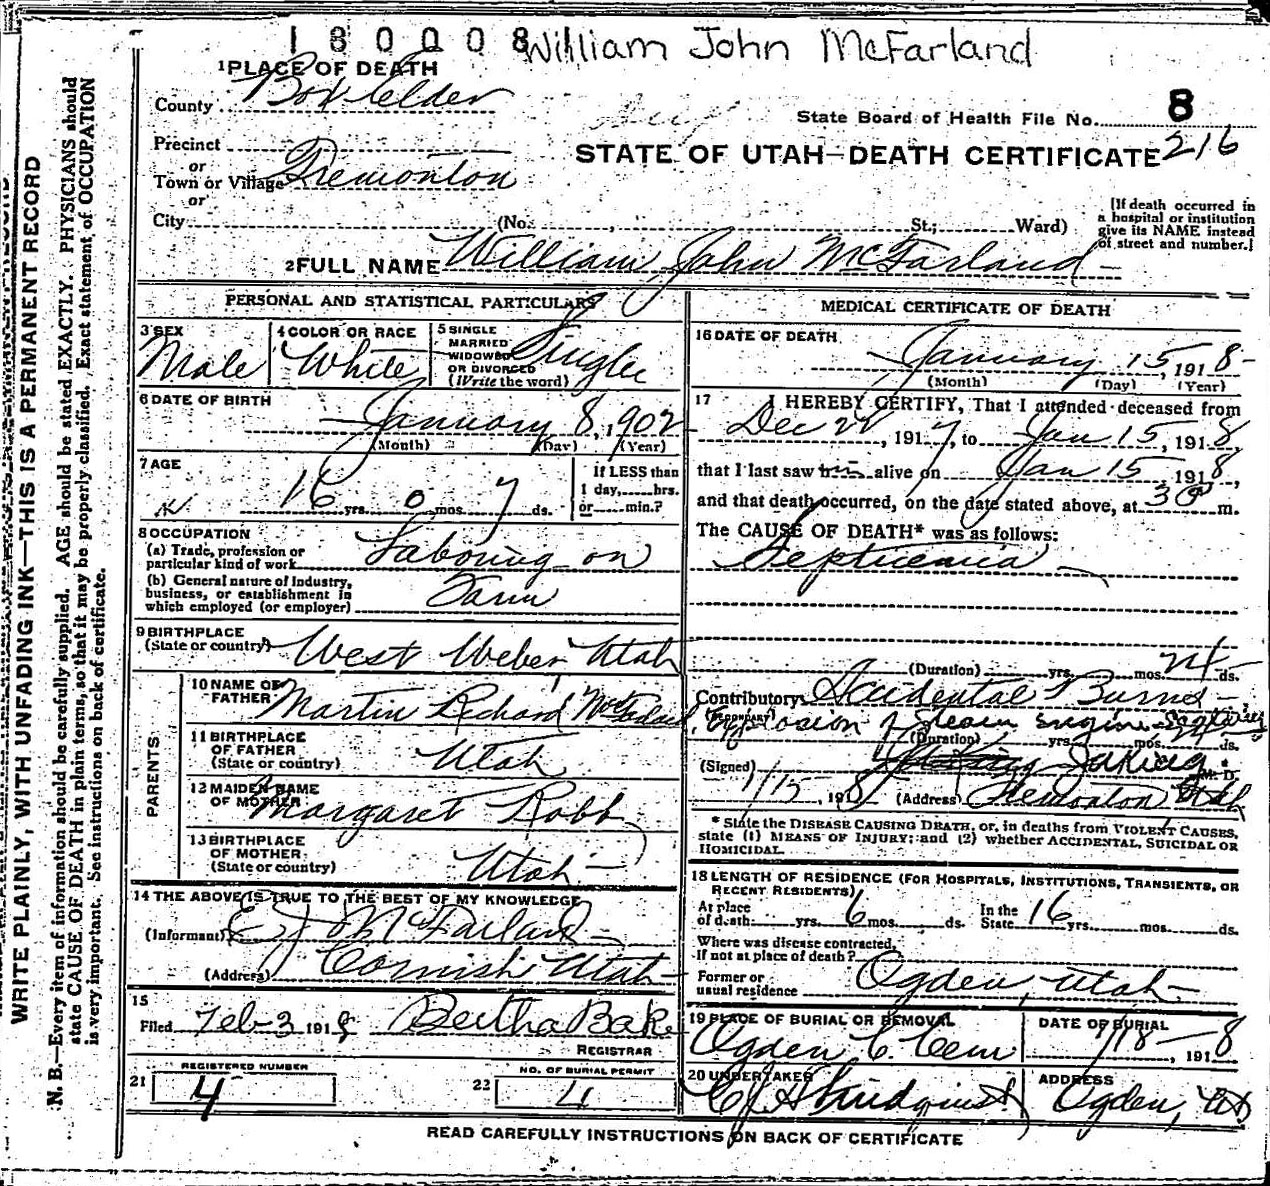 1 8 0 0 0 8 William John McFarland
1 PLACE OF DEATH
County Box Elder
State Board of Health File No. 8
Precinct
or
STATE OF UTAH—DEATH CERTIFICATE 216
Town or Village Tremonton
or
City (No. , St.; Ward)
[If death occurred in a hospital or institution give its NAME instead of street and number.]
2 FULL NAME William John McFarland
PERSONAL AND STATISTICAL PARTICULARS
3 SEX Male
4 COLOR OR RACE White
5 SINGLE MARRIED WIDOWED OR DIVORCED (Write the word) Single
6 DATE OF BIRTH
January 8, 1902
(Month) (Day) (Year)
7 AGE
16 yrs. 0 mos. 7 ds.
If LESS than 1 day, hrs. or min.?
8 OCCUPATION
(a) Trade, profession or particular kind of work Laboring on
(b) General nature of industry, business, or establishment in which employed (or employer) Farm
9 BIRTHPLACE
(State or country) West Weber Utah
PARENTS
10 NAME OF FATHER Martin Richard McFarland
11 BIRTHPLACE OF FATHER (State or country) Utah
12 MAIDEN NAME OF MOTHER Margaret Robb
13 BIRTHPLACE OF MOTHER (State or country) Utah
14 THE ABOVE IS TRUE TO THE BEST OF MY KNOWLEDGE
(Informant) McFarland
(Address) Cornish Utah
15
Filed Feb 3 1918 Bertha Bake
REGISTRAR
21 REGISTERED NUMBER 4
22 NO. OF BURIAL PERMIT 4
MEDICAL CERTIFICATE OF DEATH
16 DATE OF DEATH
January 15, 1918
(Month) (Day) (Year)
17 I HEREBY CERTIFY, That I attended deceased from
Dec 22, 1917, to Jan 15, 1918,
that I last saw him alive on Jan 15 1918,
and that death occurred, on the date stated above, at 3 P m.
The CAUSE OF DEATH* was as follows:
Septicemia
(Duration) yrs. mos. 24 ds.
Contributory Accidental Burns
(SECONDARY) Explosion of steam engine
(Duration) yrs. mos. 24 ds.
(Signed) M. D.
1/15, 1918 (Address) Tremonton Utah
* State the DISEASE CAUSING DEATH, or, in deaths from VIOLENT CAUSES, state (1) MEANS OF INJURY; and (2) whether ACCIDENTAL, SUICIDAL OR HOMICIDAL.
18 LENGTH OF RESIDENCE (FOR HOSPITALS, INSTITUTIONS, TRANSIENTS, OR RECENT RESIDENTS)
At place of death yrs. 6 mos. ds. In the State 16 yrs. mos. ds.
Where was disease contracted, If not at place of death?
Former or usual residence Ogden, Utah
19 PLACE OF BURIAL OR REMOVAL Ogden C. Cem
DATE OF BURIAL 1/18, 1918
20 UNDERTAKER
ADDRESS Ogden, Ut
READ CAREFULLY INSTRUCTIONS ON BACK OF CERTIFICATE
WRITE PLAINLY, WITH UNFADING INK—THIS IS A PERMANENT RECORD
N. B.—Every item of information should be carefully supplied. AGE should be stated EXACTLY. PHYSICIANS should
state CAUSE OF DEATH in plain terms, so that it may be properly classified. Exact statement of OCCUPATION
is very important. See instructions on back of certificate.